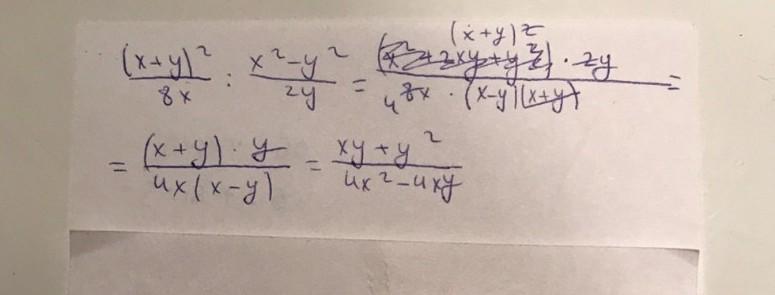 (x+y)²/8x : x²-y²/2y = (x+y)² (x²+2xy+y²) · 2y / 4 8x · (x-y)(x+y) =
= (x+y) · y / 4x(x-y) = xy+y² / 4x²-4xy